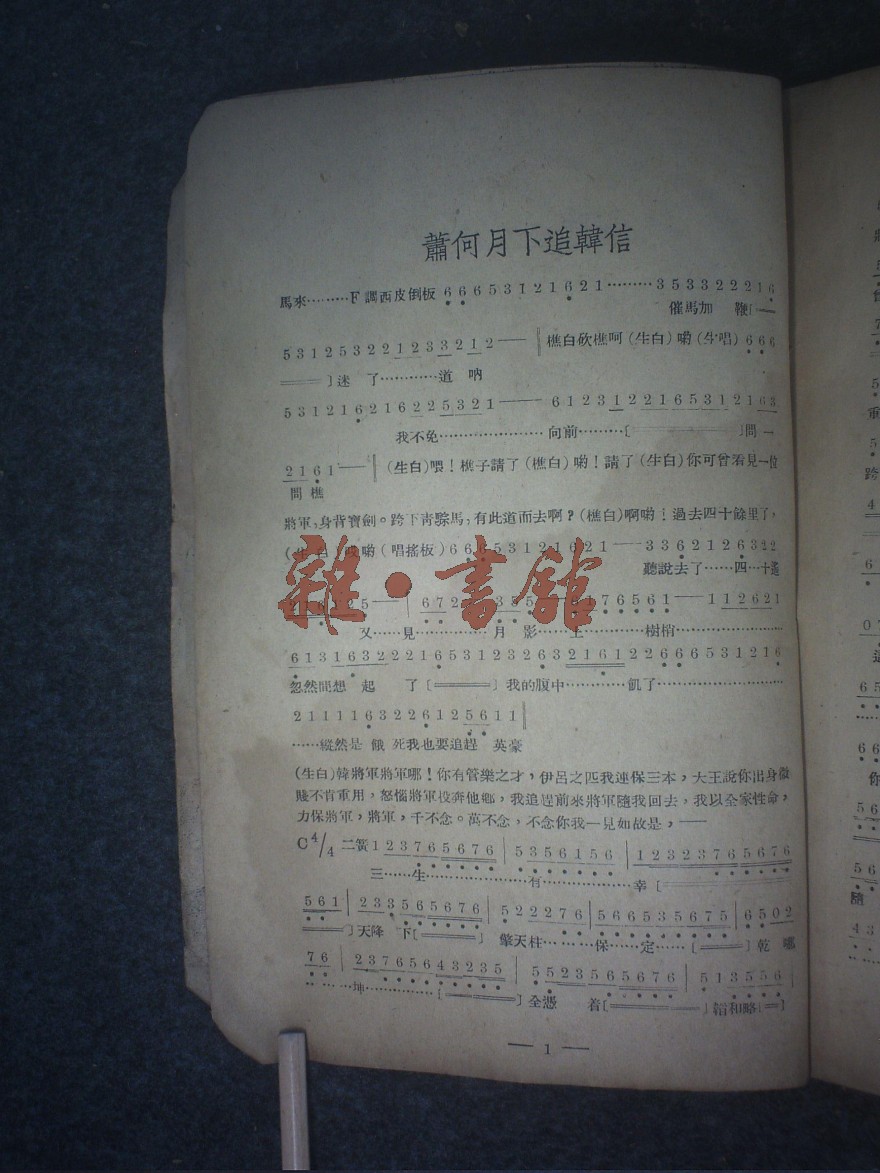 蕭何月下追韓信
馬來………F調西皮倒板 6 6 6 5 3 1 2 1 6 2 1 ……… 3 5 3 3 2 2 2 1 6
催馬加 鞭[—
5 3 1 2 5 3 2 2 1 2 3 3 2 1 2 —— ‖ 樵白砍樵呵(生白)喲(生唱) 6 6 6
══]迷 了…………道 吶
5 3 1 2 1 6 2 1 6 2 2 5 3 2 1 —— 6 1 2 3 1 2 2 1 6 5 3 1 2 1 6 3
我不免………………… 向前………[══]問 一
2 1 6 1 —— ‖ (生白)喂!樵子請了(樵白)喲!請了(生白)你可曾看見一位
問 樵
將軍,身背寶劍。跨下靑騌馬,有此道而去啊?(樵白)啊喲!過去四十餘里了,
喲(唱搖板) 6 6 6 5 3 1 2 1 6 2 1 —— 3 3 6 2 1 2 6 3 2 2
聽說去了……四…十
雜·書舘
又……見…………月 影……上…………樹梢………………………
6 1 3 1 6 3 2 2 2 1 6 5 3 1 2 3 2 6 3 2 1 6 1 2 2 6 6 6 5 3 1 2 1 6
忽然間想 起 了[══]我的腹中…………飢了………………………
2 1 1 1 1 6 3 2 2 6 1 2 5 6 1 1 ‖
……縱然是 餓 死我也要追趕 英豪
(生白)韓將軍將軍哪!你有管樂之才,伊呂之匹我連保三本,大王說你出身微
賤不肯重用,怒惱將軍投奔他鄉,我追趕前來將軍隨我回去,我以全家性命,
力保將軍,將軍,千不念。萬不念,不念你我一見如故是,——
C 4/4 二簧 1 2 3 7 6 5 6 7 6 | 5 3 5 6 1 5 6 | 1 2 3 2 3 7 6 5 6 7 6
三……生…………………有………………幸[══
5 6 1 | 2 3 3 5 6 5 6 7 6 | 5 2 2 2 7 6 | 5 6 6 5 3 5 6 7 5 | 6 5 0 2
══]天降 下[══] 擎天柱………保……定……[══]乾 哪
7 6 | 2 3 7 6 5 6 4 3 2 3 5 | 5 5 2 3 5 6 5 6 7 6 | 5 1 3 5 5 6
……坤……………[══]全憑 着[══]韜和略[═]
— 1 —